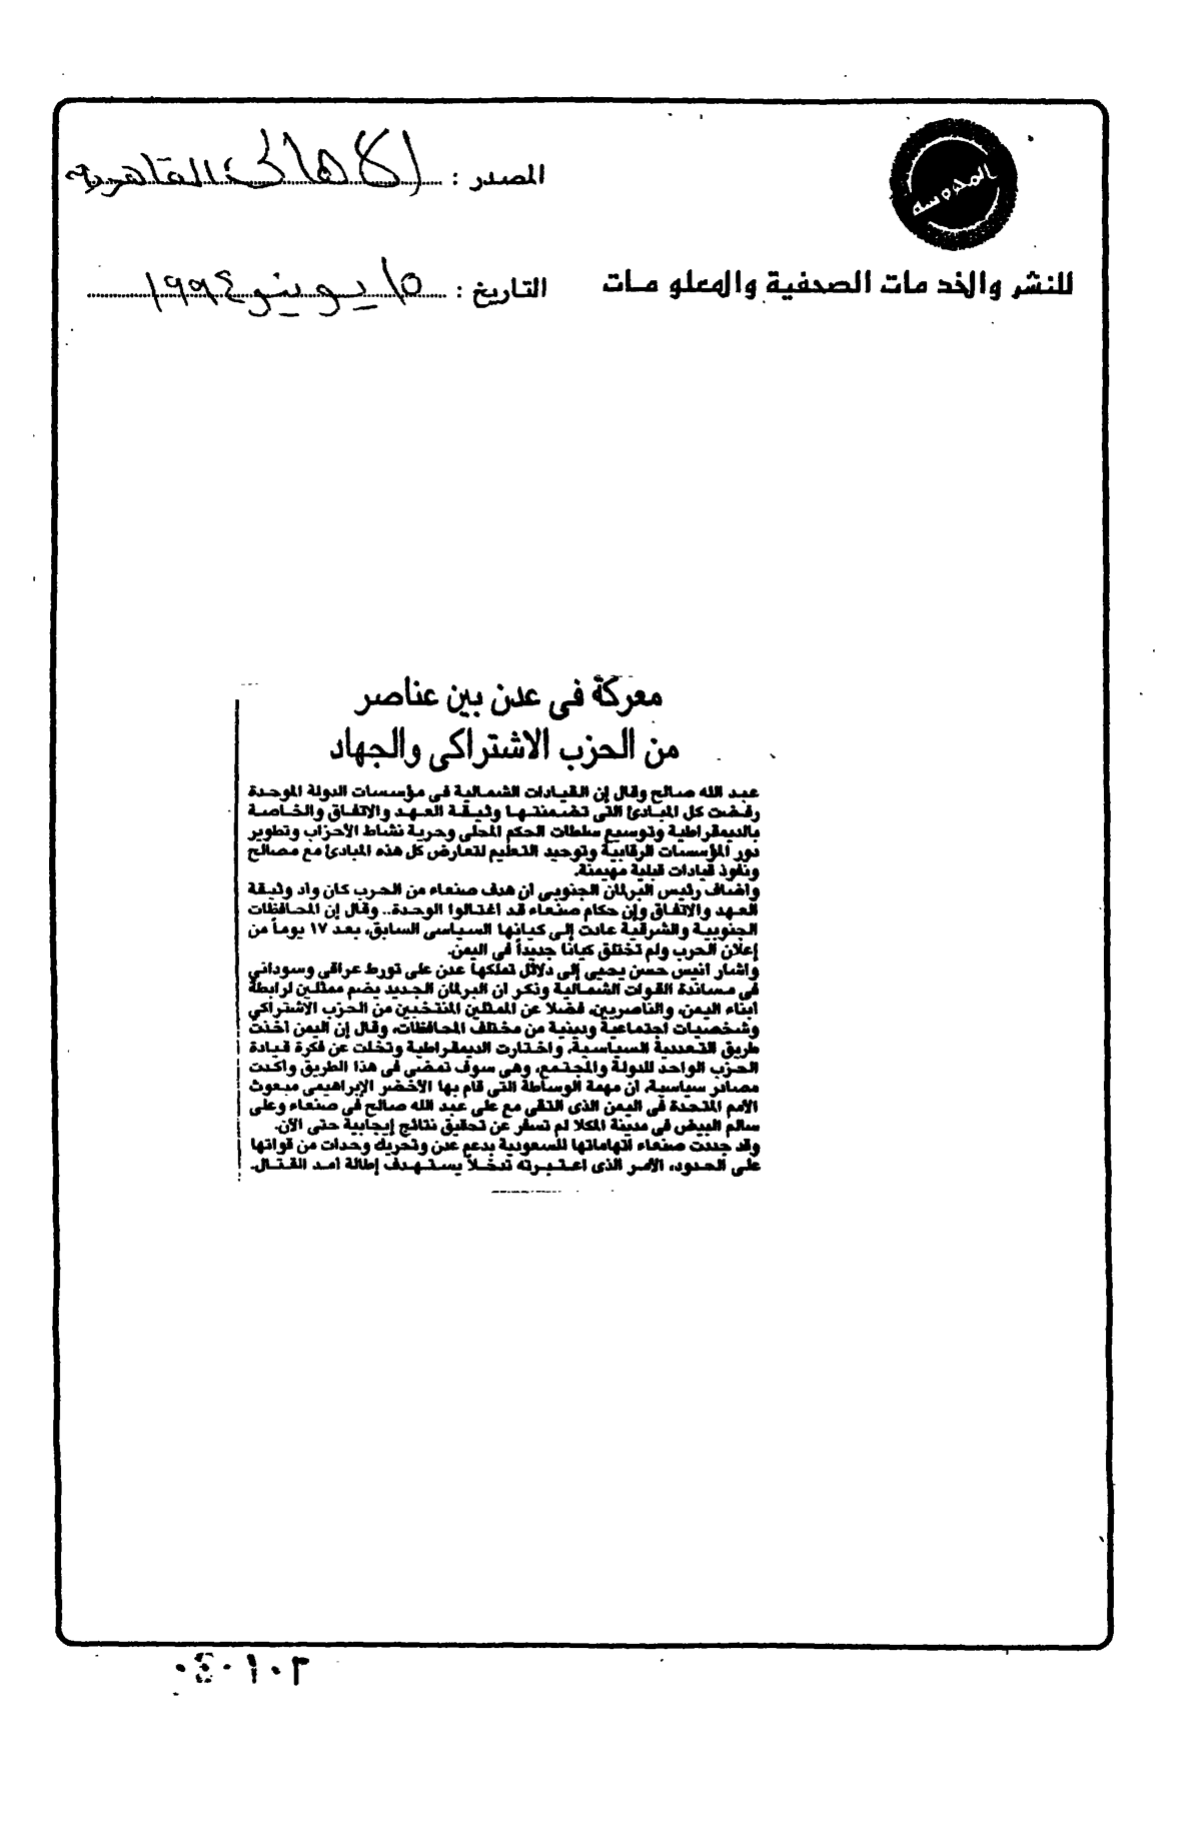 المصدر : الأهالى القاهرية
المحروسه
للنشر والخدمات الصحفية والمعلومات
التاريخ : ١٥ يونيو ١٩٩٤
معركة فى عدن بين عناصر
من الحزب الاشتراكى والجهاد
عبد الله صالح وقال إن القيادات الشمالية فى مؤسسات الدولة الموحدة
رفضت كل المبادئ التى تضمنتها وثيقة العهد والاتفاق والخاصة
بالديمقراطية وتوسيع سلطات الحكم المحلى وحرية نشاط الأحزاب وتطوير
دور المؤسسات الرقابية وتوحيد التعليم لتعارض كل هذه المبادئ مع مصالح
ونفوذ قيادات قبلية مهيمنة.
وأضاف رئيس البرلمان الجنوبى أن هدف صنعاء من الحرب كان وأد وثيقة
العهد والاتفاق وإن حكام صنعاء قد اغتالوا الوحدة.. وقال إن المحافظات
الجنوبية والشرقية عادت إلى كيانها السياسى السابق، بعد ١٧ يوماً من
إعلان الحرب ولم تختلق كيانا جديداً فى اليمن.
وأشار أنيس حسن يحيى إلى دلائل تملكها عدن على تورط عراقى وسودانى
فى مساندة القوات الشمالية وذكر أن البرلمان الجديد يضم ممثلين لرابطة
أبناء اليمن، والناصريين، فضلا عن الممثلين المنتخبين من الحزب الاشتراكى
وشخصيات اجتماعية ودينية من مختلف المحافظات، وقال إن اليمن أخذت
طريق التعددية السياسية، واختارت الديمقراطية وتخلت عن فكرة قيادة
الحزب الواحد للدولة والمجتمع، وهى سوف تمضى فى هذا الطريق وأكدت
مصادر سياسية، أن مهمة الوساطة التى قام بها الأخضر الإبراهيمى مبعوث
الأمم المتحدة فى اليمن الذى التقى مع على عبد الله صالح فى صنعاء وعلى
سالم البيض فى مدينة المكلا لم تسفر عن تحقيق نتائج إيجابية حتى الآن.
وقد جددت صنعاء اتهاماتها للسعودية بدعم عدن وتحريك وحدات من قواتها
على الحدود، الأمر الذى اعتبرته تدخلاً يستهدف إطالة أمد القتال.